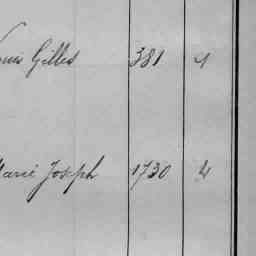 Gilles 381 4
Marie Joseph 1730 4